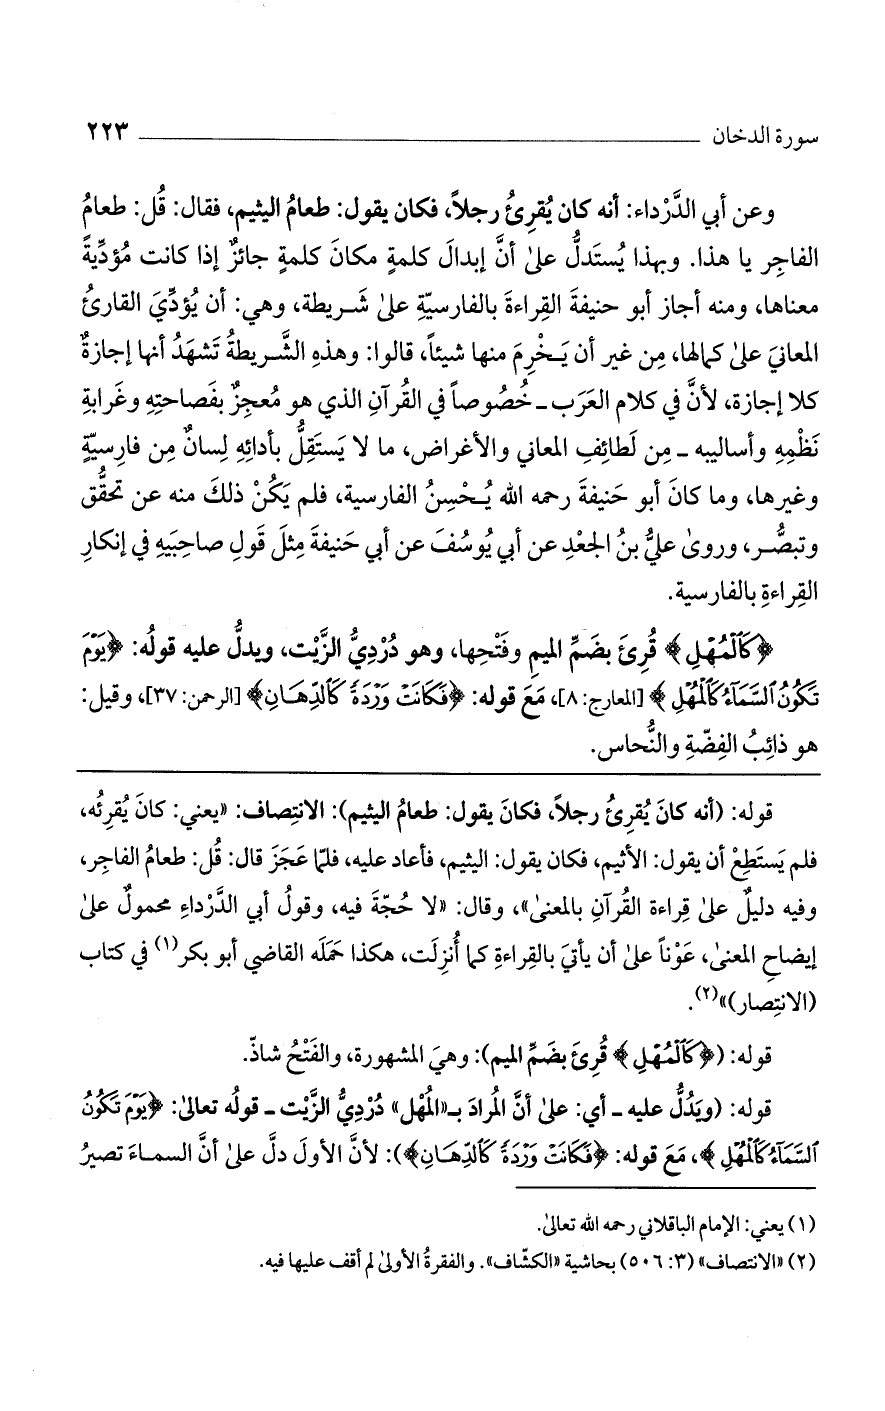 سورة الدخان ــــــــــــــــــــــــــــــــ ٢٢٣
وعن أبي الدَّرْداء: أنه كان يُقرِئُ رجلاً، فكان يقول: طعامُ اليثيم، فقال: قُل: طعامُ
الفاجِرِ يا هذا. وبهذا يُستَدلُّ علىٰ أنَّ إبدالَ كلمةٍ مكانَ كلمةٍ جائزٌ إذا كانت مُؤدِّيةً
معناها، ومنه أجاز أبو حنيفةَ القِراءةَ بالفارسيّةِ علىٰ شَريطة، وهي: أن يُؤدِّيَ القارئُ
المعانيَ علىٰ كمالها، مِن غير أن يَخْرِمَ منها شيئاً، قالوا: وهذهِ الشَّريطةُ تَشهَدُ أنها إجازةٌ
كلا إجازة، لأنَّ في كلام العَرَب ـ خُصُوصاً في القُرآنِ الذي هو مُعجِزٌ بفَصاحتِهِ وغَرابةِ
نَظْمِهِ وأساليبه ـ مِن لَطائفِ المعاني والأغراض، ما لا يَستَقِلُّ بأدائِهِ لِسانٌ مِن فارِسيّةٍ
وغيرِها، وما كانَ أبو حَنيفةَ رحمه الله يُحْسِنُ الفارسية، فلم يَكُنْ ذلكَ منه عن تحقُّق
وتبصُّر، وروىٰ عليُّ بنُ الجَعْدِ عن أبي يُوسُفَ عن أبي حَنيفةَ مِثلَ قَولِ صاحِبَيهِ في إنكارِ
القِراءةِ بالفارسية.
﴿كَٱلْمُهْلِ﴾ قُرِئَ بضَمِّ الميمِ وفَتْحِها، وهو دُرْدِيُّ الزَّيْت، ويدلُّ عليه قولُه: ﴿يَوْمَ
تَكُونُ ٱلسَّمَآءُ كَٱلْمُهْلِ﴾ [المعارج: ٨]، مَعَ قوله: ﴿فَكَانَتْ وَرْدَةً كَٱلدِّهَانِ﴾ [الرحمن: ٣٧]، وقيل:
هو ذائِبُ الفِضّةِ والنُّحاس.
قوله: (أنه كانَ يُقرِئُ رجلاً، فكانَ يقول: طعامُ اليثيم): الانتِصاف: «يعني: كانَ يُقرِئُه،
فلم يَستَطِعْ أن يقول: الأثيم، فكان يقول: اليثيم، فأعاد عليه، فلمّا عَجَزَ قال: قُل: طعامُ الفاجر،
وفيه دليلٌ علىٰ قِراءة القُرآنِ بالمعنىٰ»، وقال: «لا حُجّةَ فيه، وقولُ أبي الدَّرْداءِ محمولٌ علىٰ
إيضاحِ المعنىٰ، عَوْناً علىٰ أن يأتيَ بالقِراءةِ كما أُنزِلَت، هكذا حَمَلَه القاضي أبو بكر(١) في كتاب
(الانتِصار)»(٢).
قوله: (﴿كَٱلْمُهْلِ﴾ قُرِئَ بضَمِّ الميم): وهيَ المشهورة، والفَتْحُ شاذّ.
قوله: (ويَدُلُّ عليه ـ أي: علىٰ أنَّ المُرادَ بـ«المُهْل» دُرْدِيُّ الزَّيْت ـ قولُه تعالىٰ: ﴿يَوْمَ تَكُونُ
ٱلسَّمَآءُ كَٱلْمُهْلِ﴾، مَعَ قوله: ﴿فَكَانَتْ وَرْدَةً كَٱلدِّهَانِ﴾): لأنَّ الأولَ دلَّ علىٰ أنَّ السماءَ تصيرُ
(١) يعني: الإمام الباقلاني رحمه الله تعالىٰ.
(٢) «الانتصاف» (٣: ٥٠٦) بحاشية «الكشّاف». والفقرةُ الأولىٰ لم أقف عليها فيه.